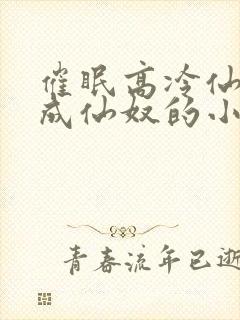 催眠高冷仙
成仙奴的小
青春流年已逝